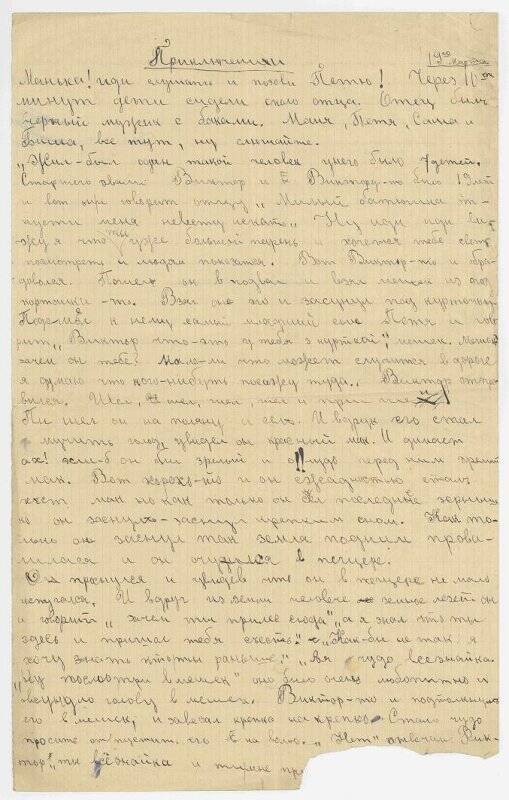 Приключения
19го марта
Манька! иди слушать и позови Петю! Через 11ть
минут дети сидели около отца. Отец был
черный мужик с баками. Маня, Петя, Саша и
все тут, ну слушайте.
"Жил-был один такой человек у него было 7 детей.
Старшего звали Виктор и Виктору-то было 19 лет
и вот он говорит отцу "Милый батюшка от-
пусти меня невесту искать" Ну иди иди
я что ты уже большой парень и хочется тебе свет
посмотреть и людям показатся. Вот Виктор-то и обра-
довался. Пошел он в подвал и взял мешок из под
-то. Взял он его и засунул под курточку
к нему самый младший сын Петя и гово
рит "Виктор что-это у тебя з курткой", мешок.
зачем он тебе. Мало-ли что может случится в дороге
я думаю что кого-нибуть посажу туда. Виктор отпра
вился. Шел, шел, шел, шел и
шел он на поляну и сел. И вдруг его стал
мучить голод, увидел он красный мак. И думает
ах! если-б он был зрелый и о чудо перед ним зрелый
мак. Вот хорошо-то и он с жадностью стал
есть мак но как только он съел последнее зерныш
ко он заснул-заснул крепким сном. Как то-
лько он заснул так земля под ним прова-
лилася и он очутился в пещере.
Он проснулся и увидев что он в пещере не мало
испугался. И вдруг из земли человече земное лезет он
и говорит "зачем ты пришел сюда" "а я знал что ты
здесь и пришел тебя съесть." "Как-бы не так, я
хочу знать кто ты раньше." "Я чудо всезнайка
"Ну посмотри в мешек" оно было очень любопытно и
всунуло голову в мешек. Виктор-то и подтолкнул
его в мешек, и завезал крепко накрепко. Стало чудо
просить отпустить его на волю. "Нет" отвечал Вик-
тор" ты всёзнайка и ты мне